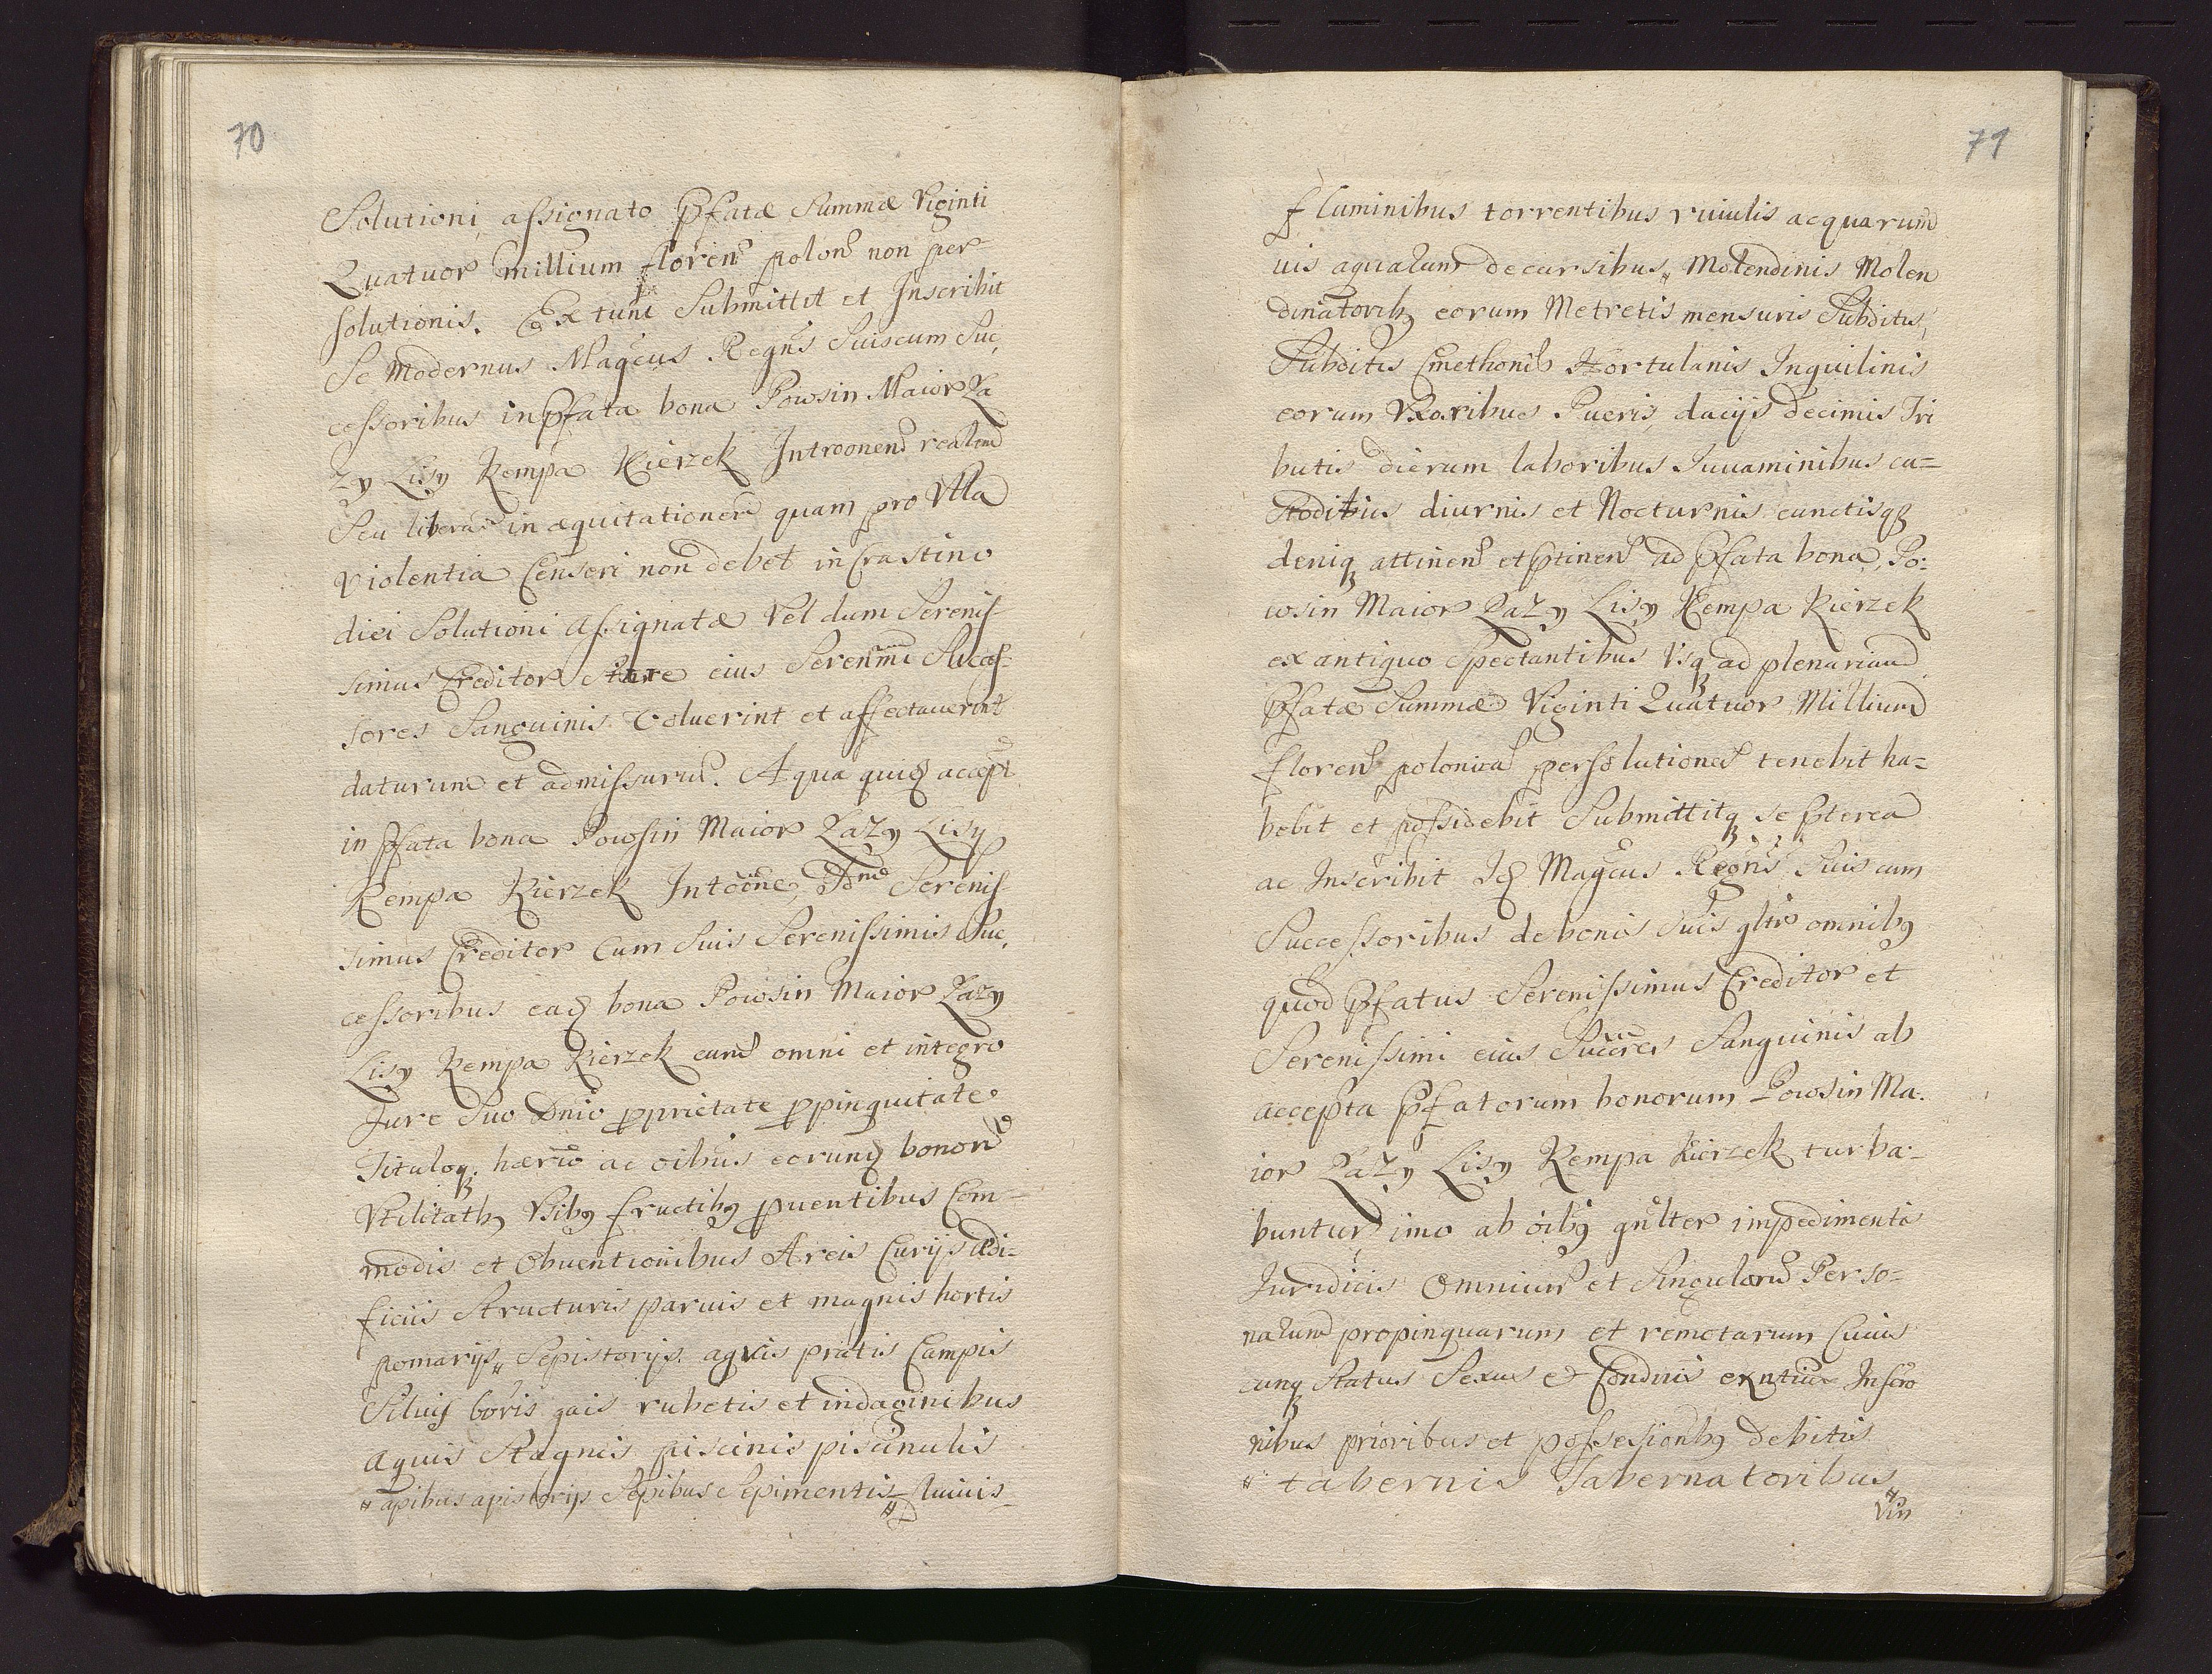 70
Solutioni assignato Pfatæ Summæ Viginti
Quatuor millium floren polon non per
solutionis. Ex tunc Submittit et Inscribit
Se Modernus Magcus Regns Suis cum Suc,
cessoribus in Pfata bona Powsin Maior Ła
zy Lisy Kempa Kierzek Intromen realem
Seu liberam in æquitationem quam pro Vlla
Violentia Censeri non debet in Crastino
diei Solutioni Assignatæ Vel dum Serenis-
simus Creditor ejus Serenmi Succes-
sores Sanguinis Voluerint et affectauerint
daturum et admissurum. A qua quid accept
in Pfata bona Powsin Maior Łazy Lisy
Kempa Kierzek Intoone, Dnus Serenis
simus Creditor Cum Suis Serenissimis Suc,
cessoribus ead bona Powsin Maior Łazy
Lisy Kempa Kierzek cum omni et integro
Jure Suo Dnio pprietate ppinquitate
Tituloq. hærio ac oibus eorund bonor
Vtilitatb9 Vsib9 fructib9 puentibus Com-
modis et Obuentionibus Areis Curijs Ædi-
ficiis Structuris paruis et magnis hortis
pomarijs „ Sepistorijs. agris pratis Campis
Siluis boris gais rubetis et indaginibus
aquis Stagnis piscinis piscinulis
„ apibus apistorijs Sepibus Sepimentis „ fluuis-
71
fluminibus torrentibus riuulis acquarum
uis aquarum decursibus „ Molendinis Molen
dinatorib9 eorum Metretis mensuris Subditis,
Subditis Cmethonib Hortulanis Inquilinis
eorum Vxoribus Pueris, dacijs decimis Tri
butis dierum laboribus Juuaminibus cu=
stodibus diurnis et Nocturnis cunctisq3
deniq attinen et ptinen ad Pfata bona, Po:
wsin Maior Łazy Lisy Kempa Kierzek
ex antiquo Spectantibus Vsq ad plenariam
Pfatæ Summæ Viginti Quatuor Millium
floren polonical persolutionem tenebit ha=
bebit et possidebit Submittitq se pterea
ac Inscribit Id Magcus Regns Suis cum
Successoribus de bonis Suis gltr omnib9
quod Pfatus Serenissimus Creditor et
Serenissimi eius Succres Sanguinis ab
accepta Pfatorum bonorum Powsin Ma.
ior Łazy Lisy Kempa Kierzek turba-
buntur imo ab oib9 gnlter impedimentis
Juridicis Omnium et Singularum Perso-
narum propinquarum et remotarum Cuius
cunq Status Sexus et Condnis exntium Inscrio
nibus prioribus et possesionib9 debitis
„ tabernis Tabernatoribus „
Vin